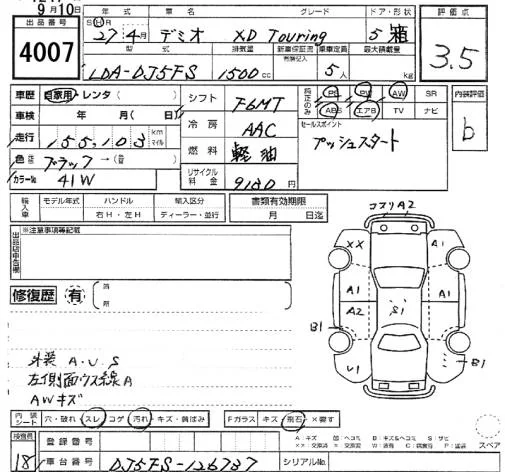 9月10日
出品番号
4007
年式 車名 グレード ドア・形状
S H 27年4月 デミオ XD Touring 5 箱
型式 排気量 新車保証書 有無記入 乗車定員 最大積載量
LDA-DJ5FS 1500cc 5人 kg
評価点
3.5
車歴 自家用・レンタ( )
車検 年 月( 日)
走行 155,103 km マイル
色 ブラック→(色)
カラーNo 41W
シフト F6MT
冷房 AAC
燃料 軽油
リサイクル料金 9180円
純正のみ PS PW AW SR
ABS エアB TV ナビ
セールスポイント
プッシュスタート
内装評価
b
輸入車 モデル年式 ハンドル 右H・左H 輸入区分 ディーラー・並行
書類有効期限
月 日迄
出品店申告欄
※注意事項等記載
修復歴 有 箇所
コスリA2
XX A1
A1 A1
A2 S1
B1
U1 B1
外装 A.U.S
左側面ウス線A
AWキズ
内装シート 穴・破れ・スレ・コゲ・汚れ・キズ・黄ばみ Fガラス キズ・飛石・×要す
A:キズ 凹:ヘコミ B:キズ&ヘコミ S:サビ
スペア
検査員
18
登録番号
車台番号 DJ5FS-126737 シリアルNo.